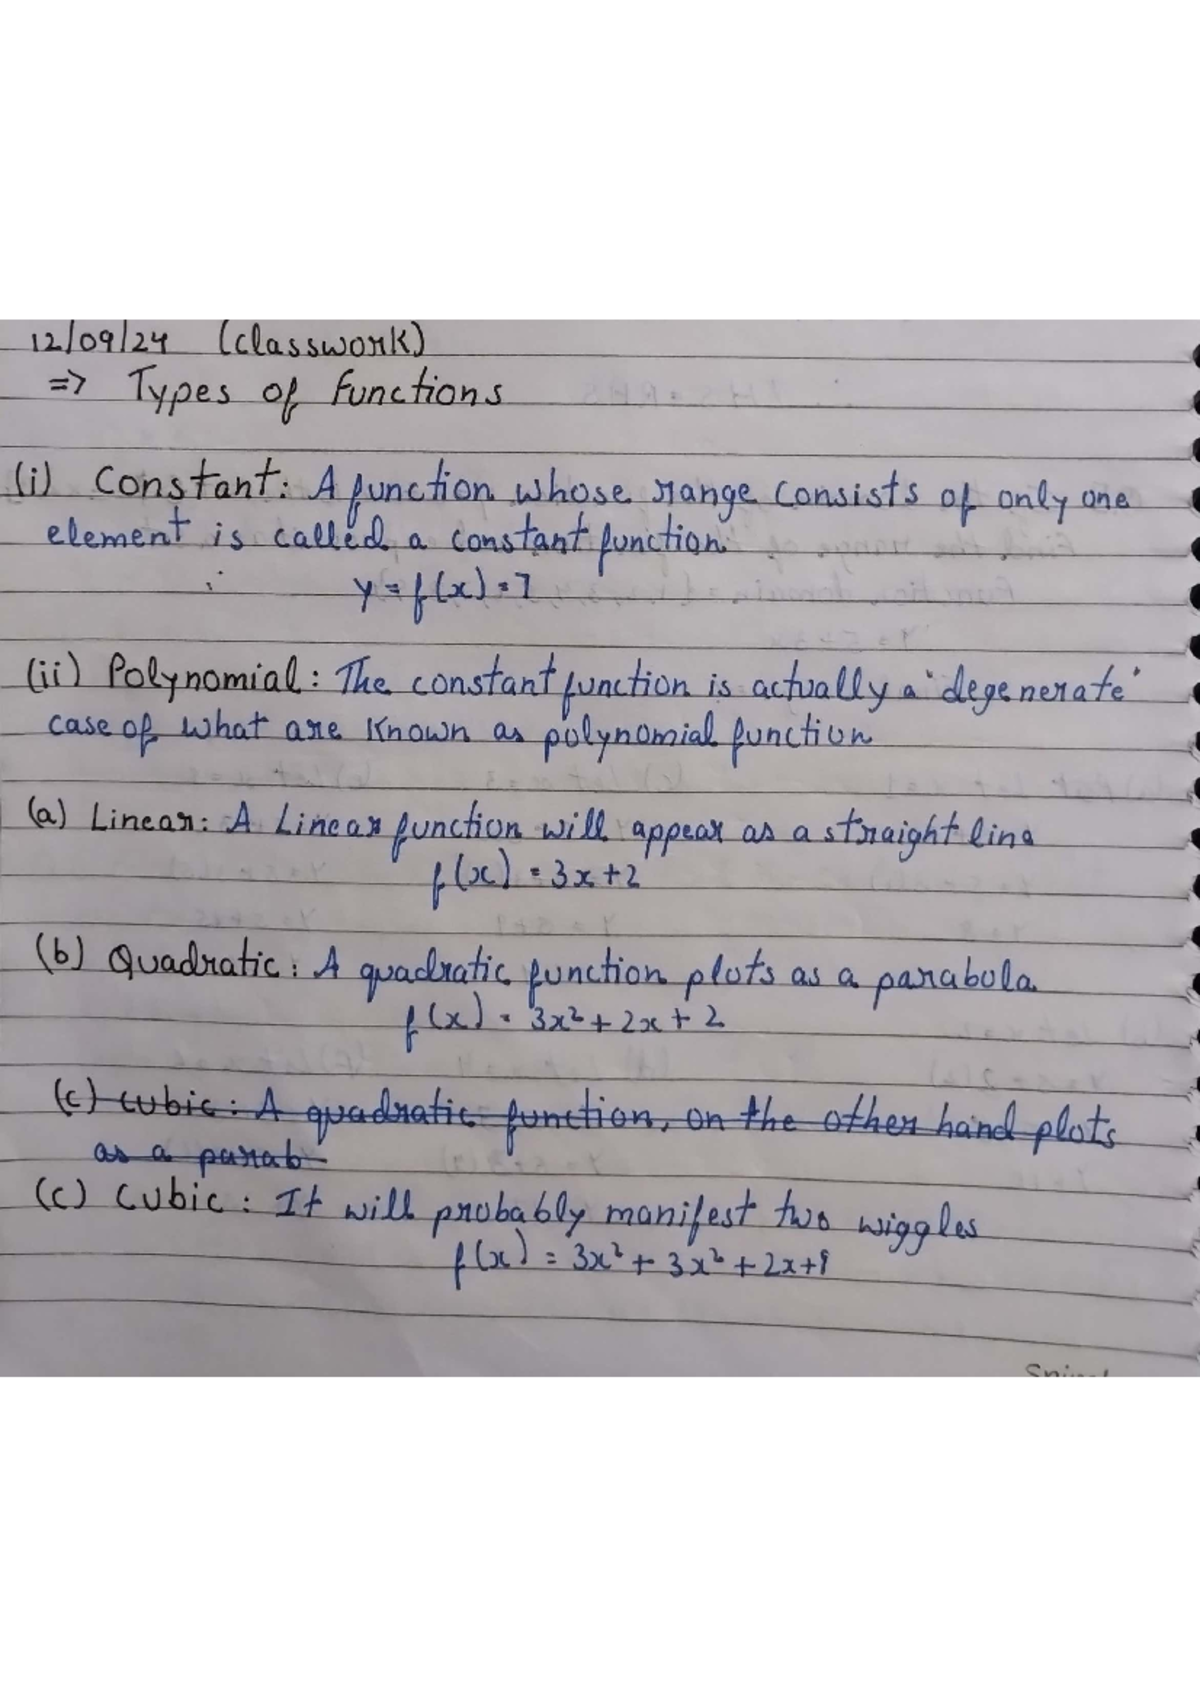 12/09/24 (classwork)
=> Types of functions
(i) Constant: A function whose range consists of only one
element is called a constant function
y = f(x) = 7
(ii) Polynomial: The constant function is actually a 'degenerate'
case of what are known as polynomial function
(a) Linear: A Linear function will appear as a straight line
f(x) = 3x+2
(b) Quadratic: A quadratic function plots as a parabola
f(x) = 3x² + 2x + 2
(c) cubic: A quadratic function, on the other hand plots
as a parab
(c) Cubic: It will probably manifest two wiggles
f(x) = 3x³ + 3x² + 2x+9